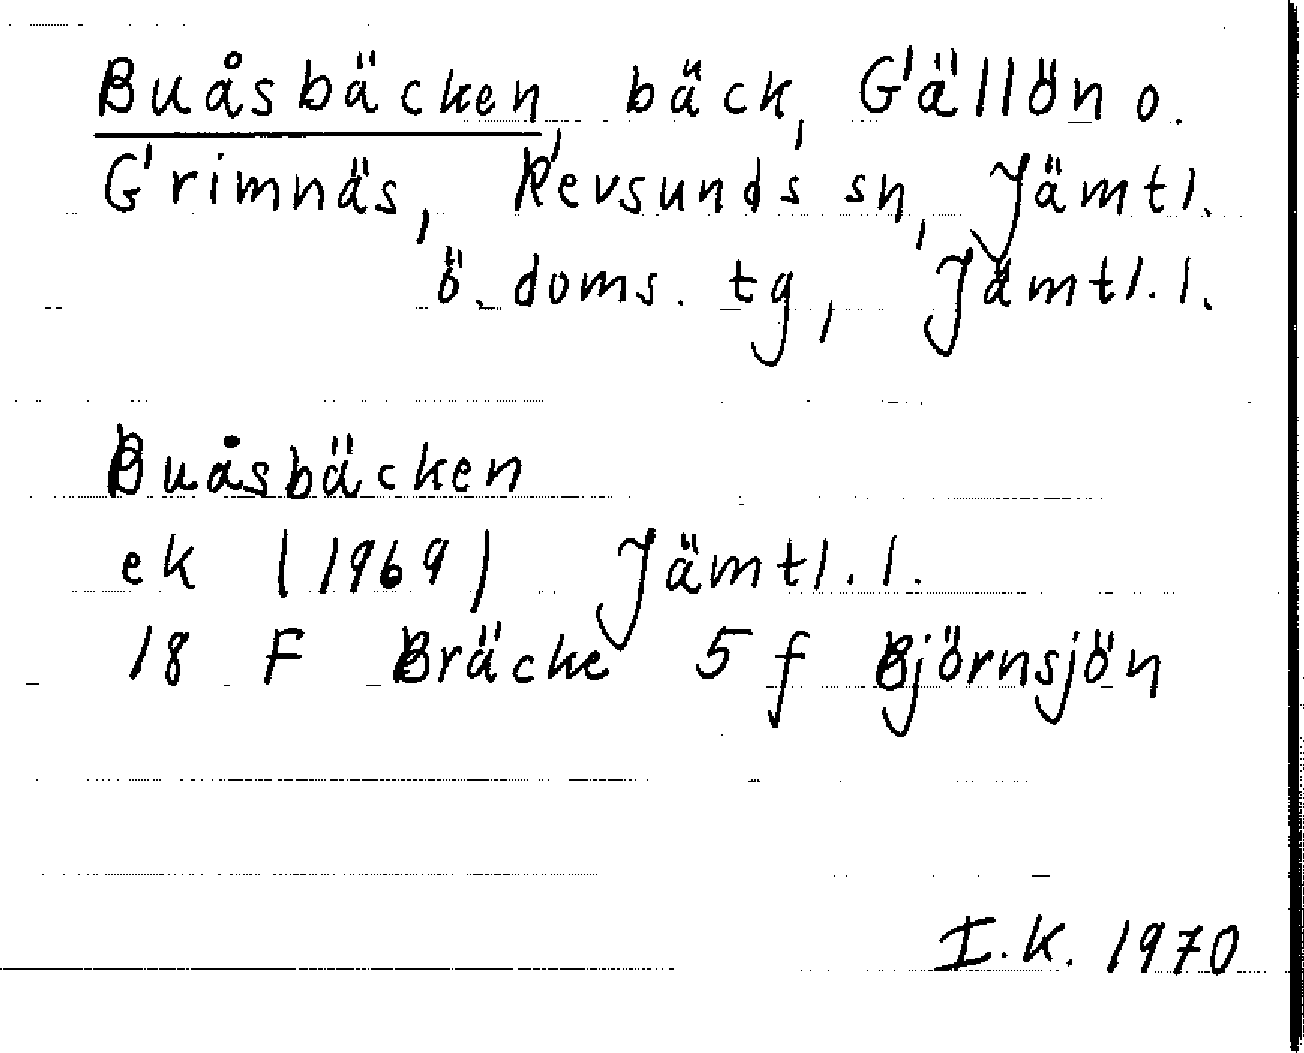 Buåsbäcken, bäck, Gällön o.
Grimnäs, Revsunds sn, Jämtl.
ö. doms. tg, Jämtl. l.
Buåsbäcken
ek (1969) Jämtl. l.
18 F Bräcke 5 f Björnsjön
I.K. 1970